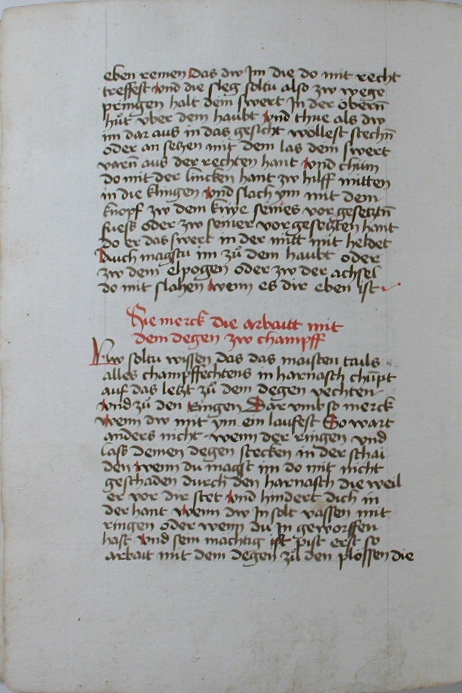 eben remen Das dw Im die do mit recht
treffest vnd die sleg soltu also zw wege
pringen halt dein swert In der obern
hut vber dem haubt vnd thue als dw
im dar aus in das gesicht wollest stechñ
oder an seczen mit dem las dein swert
varñ aus der rechten hant vnd chum
do mit der lincken hant zw hilff mitten
in die klingen vnd slach ym mit dem
knopf zw dem knye seines vor gesetztñ
fuess oder zw seiner vorgesetzten hant
do er das swert in der mitt mit heldet
Auch magstu im zu dem haubt oder
zw dem elpogen oder zw der achsel
do mit slahen wenn es dir eben ist
Hie merck die arbaitt mit
dem degen zw champff
Nw soltu wissen das das maisten tails
alles champffechtens in harnasch chupt
auf das letzt zu dem degen vechten
vnd zu den Ringen Dar vmb so merck
wenn dw mit ym ein lauffest So wart
anders nicht wenn der ringen vnd
lass deinen degen stecken in der schai
den wenn du magst im do mit nicht
geschaden durch den harnasch die weil
er vor dir stet vnd hindert dich in
der hant wenn dw In solt vassen mit
ringen oder wenn du In geworffen
hast vnd sein machtig pist erst so
arbait mit dem degen zu den plossen die